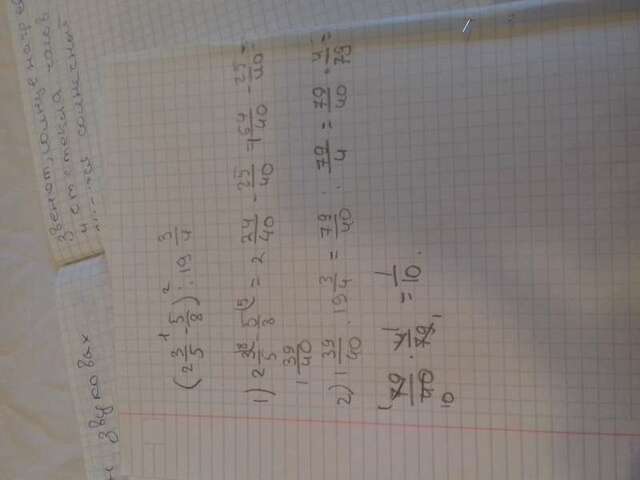 звуковах
звенот, солнце нагрев
и от стекла часов
солнечный
(2 3/5 - 5/8) : 19 3/4
1) 2 3/5 - 5/8 = 2 24/40 - 25/40 = 1 64/40 - 25/40 =
1 39/40
2) 1 39/40 : 19 3/4 = 79/40 : 79/4 = 79/40 · 4/79 =
79/40 · 4/79 = 1/10.